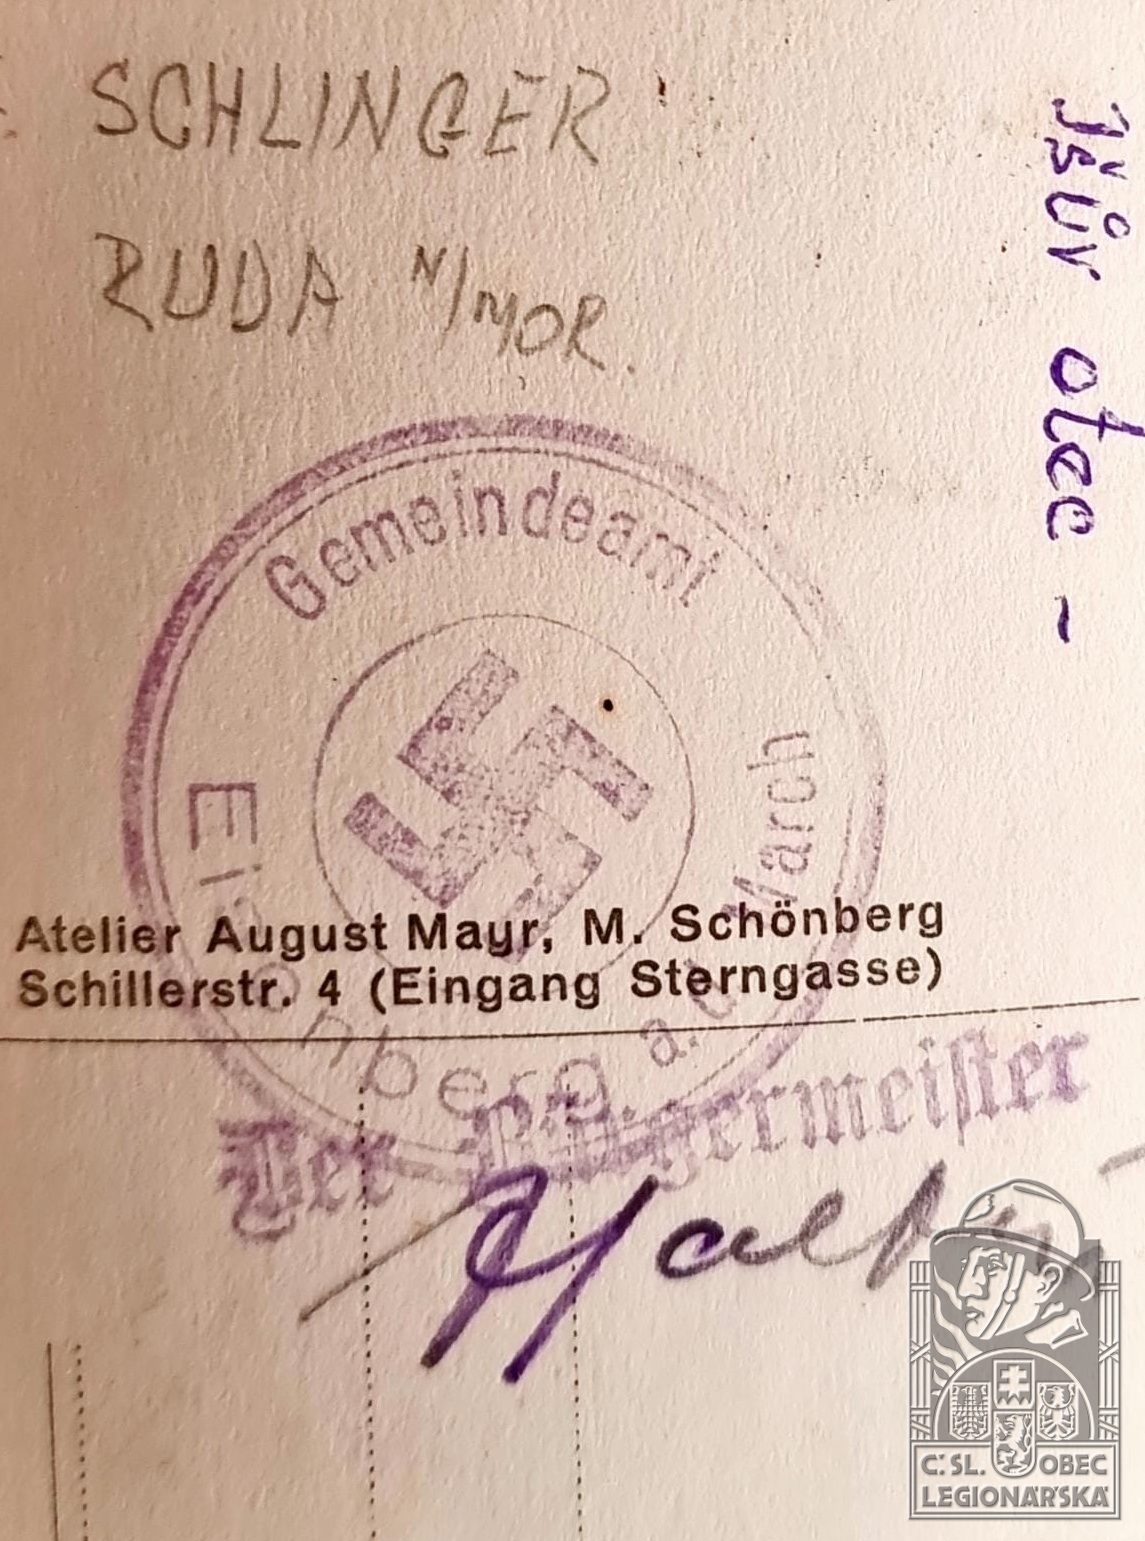 SCHLINGER
RUDA N/MOR.
Jšův otec -
Gemeindeamt
Eisenberg a.d. March
Atelier August Mayr, M. Schönberg
Schillerstr. 4 (Eingang Sterngasse)
Der Bürgermeister
Č. SL. OBEC
LEGIONÁŘSKÁ